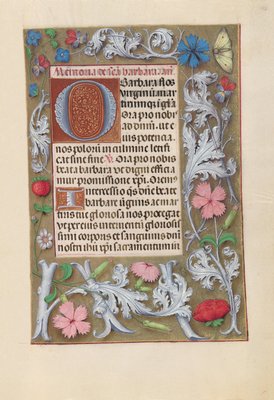 Memoria de scā barbara an̄.
O Barbara flos
virginū / a mar
tirum q̄ i gl̄a
Ora pro nobis
ad dnm̄. ut e
ius potencia.
nos polorū in culmine letifi
cat sine fine V̄ Ora pro nobis
beata barbara ut digni effica
mur promissione xp̄i. Oremꝰ
Intercessio qs̄ dn̄e beate
barbare virginis ac mar
tiris tue gloriosa nos protegat
ut per eius interuentū gloriosis
simi corporis et sanguinis dn̄i
nostri ihū xp̄i sacramentum ut